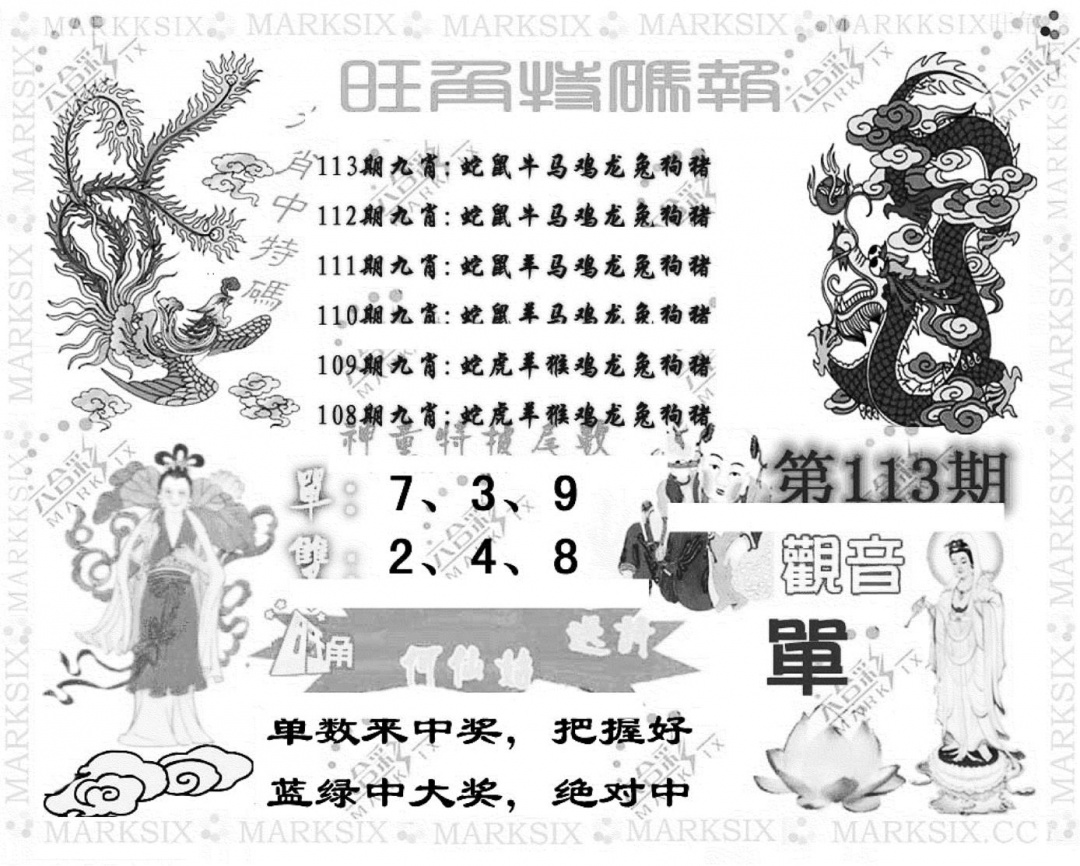 MARKSIX
旺角特碼報
九肖中特碼
113期九肖:蛇鼠牛马鸡龙兔狗猪
112期九肖:蛇鼠牛马鸡龙兔狗猪
111期九肖:蛇鼠羊马鸡龙兔狗猪
110期九肖:蛇鼠羊马鸡龙兔狗猪
109期九肖:蛇虎羊猴鸡龙兔狗猪
108期九肖:蛇虎羊猴鸡龙兔狗猪
神童特搜尾數
單: 7、3、9
雙: 2、4、8
第113期
觀音
單
旺角
何仙姑
单数来中奖，把握好
蓝绿中大奖，绝对中
MARKSIX.CC